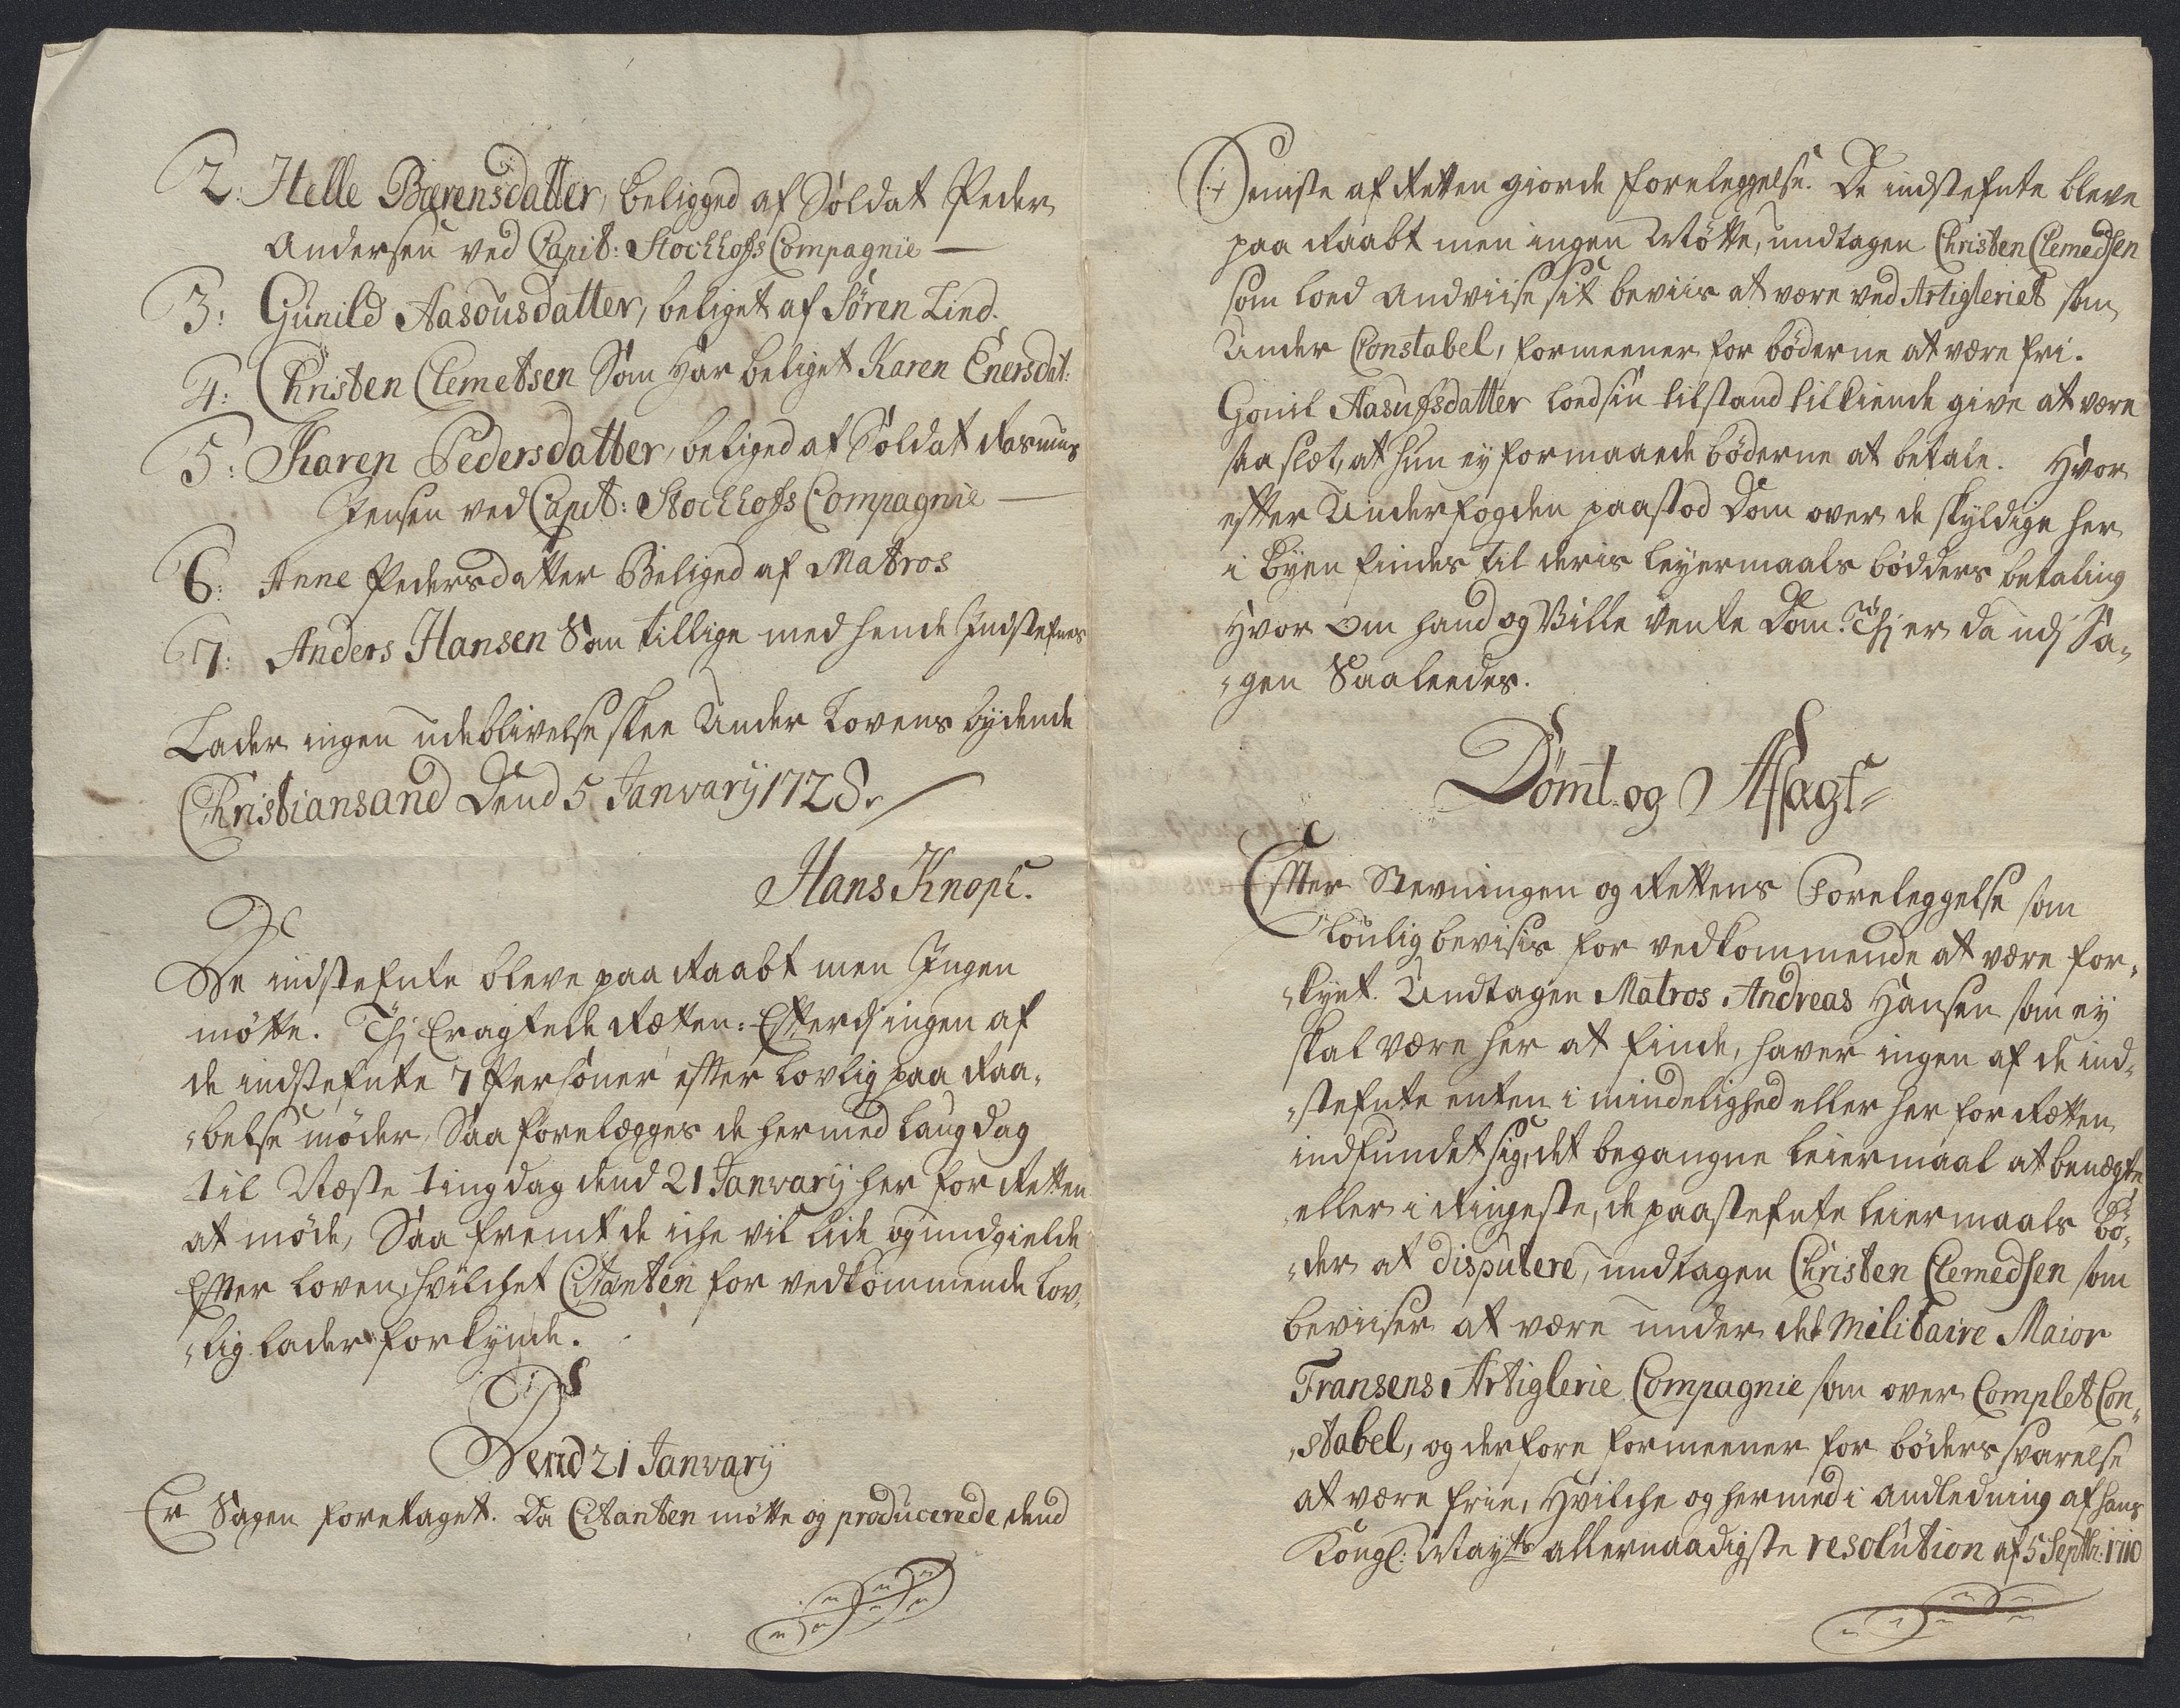 2. Helle Bærensdatter, beligged af Soldat Peder
Andersen ved Capit: Stockhofs Compagnie —
3: Gunild Aasousdatter, beliget af Sören Lind.
4: Christen Clemetsen Som har beliget Karen Enersdat:
5: Karen Pedersdatter, beliged af Soldat Rasmus
Jensen ved Capit: Stockhofs Compagnie —
6: Anne Pedersdatter Beliged af Matros
7: Anders Hansen Som tillige med hende Indstefnes
Lader ingen udeblivelse skee Under Lovens bydende
Christiansand Dend 5 Janvarij 1728.
Hans Knoph.
De indstefnte bleve paa Raabt men Ingen
mötte. Thj Eragtede Retten: Efterdj ingen af
de indstefnte 7 Persöner efter lovlig paa Raa,
,belse möder, Saa forelegges de hermed laugdag
til Næste tingdag dend 21 Janvarij her for Retten
at möde, Saa fremt de iche vil lide og undgielde
Efter loven, hvilchet Citanten for vedkommende lov,
,lig lader forkynde.
Dend 21 Janvarij
Er Sagen foretaget. Da Citanten mötte og producerede dend
Seniste af Retten giorde foreleggelse. De indstefnte bleve
paa Raabt men ingen Mötte, undtagen Christen Clemedsen
som loed Andviise sit beviis at være ved Artigleriet som
Under Constabel, formeener for böderne at være fri.
Gonil Aasufsdatter loed sin tilstand tilkiende give at være
saa slet, at hun ey formaaede böderne at betale. Hvor
efter Underfogden paastod Dom over de skyldige her
i Byen findes til deris leyermaals bödders betaling
Hvor Om hand og Ville vente Dom. Thj er da udj Sa,
,gen Saaleedes.
Dömt og Afsagt
Efter Stevningen og Rettens Foreleggelse som
loulig bevisis for vedkommende at være for,
,kynt. Undtagen Matros Andreas Hansen som ey
skal være her at finde, haver ingen af de ind,
,stefnte enten i mindelighed eller her for Retten
indfundet sig, det begangne leiermaal at benægte
eller i Ringeste, de paastefnte leiermaals bö,
,der at disputere, undtagen Christen Clemedsen som
beviiser at være under det Militaire Maior
Fransens Artiglerie Compagnie som over Complet Con,
,stabel, og derfore formeener for böders svarelse
at være frie, Hvilche og hermed i andledning af hans
Kongl: Mayts allernaadigste resolution af 5 Septbr: 1710